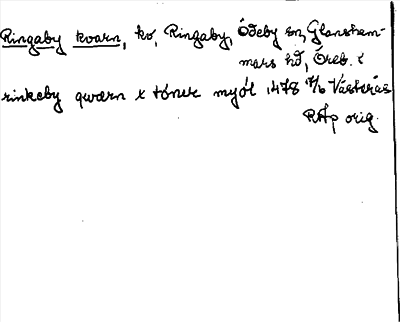 Ringaby kvarn, kv, Ringaby, Ödeby sn, Glansham-
mars hd, Öreb. l
rinkeby qwærn x töner myöl 1478 7/6 Västerås
RAp orig.